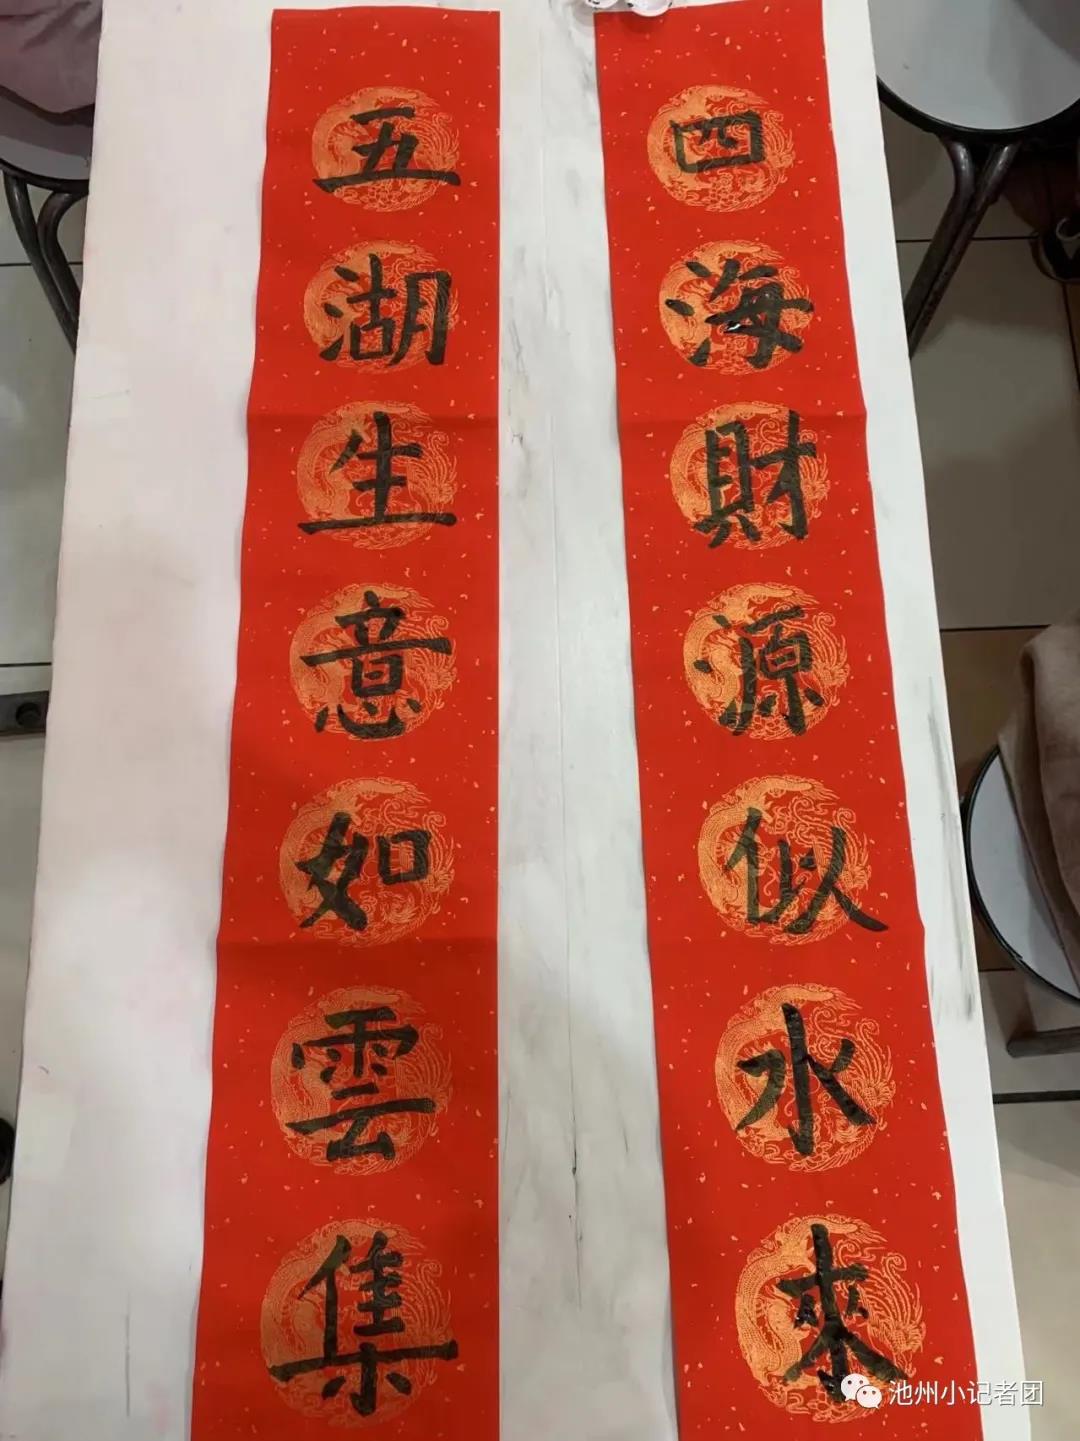 四海財源似水來
五湖生意如雲集
池州小记者团